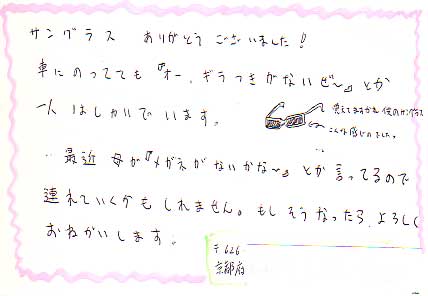 サングラス ありがとうございました！
車にのってても『オー、ギラつきがないぜ〜』とか
一人はしゃいでいます。
覚えてますかね 僕のサングラス
こんな感じのでした。
最近 母が『メガネがないかな〜』とか言ってるので
連れていくかもしれません。もしそうなったら、よろしく
おねがいします。
〒626
京都府